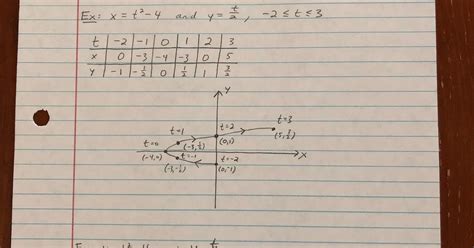 Ex: x = t²-4 and y = t/2, -2 ≤ t ≤ 3
t | -2 | -1 | 0 | 1 | 2 | 3
x | 0 | -3 | -4 | -3 | 0 | 5
y | -1 | -1/2 | 0 | 1/2 | 1 | 3/2
y
t=2
t=3
t=1
(5, 3/2)
t=0
(-3, 1/2)
(0,1)
x
(-4,0)
t=-1
t=-2
(-3,-1/2)
(0,-1)